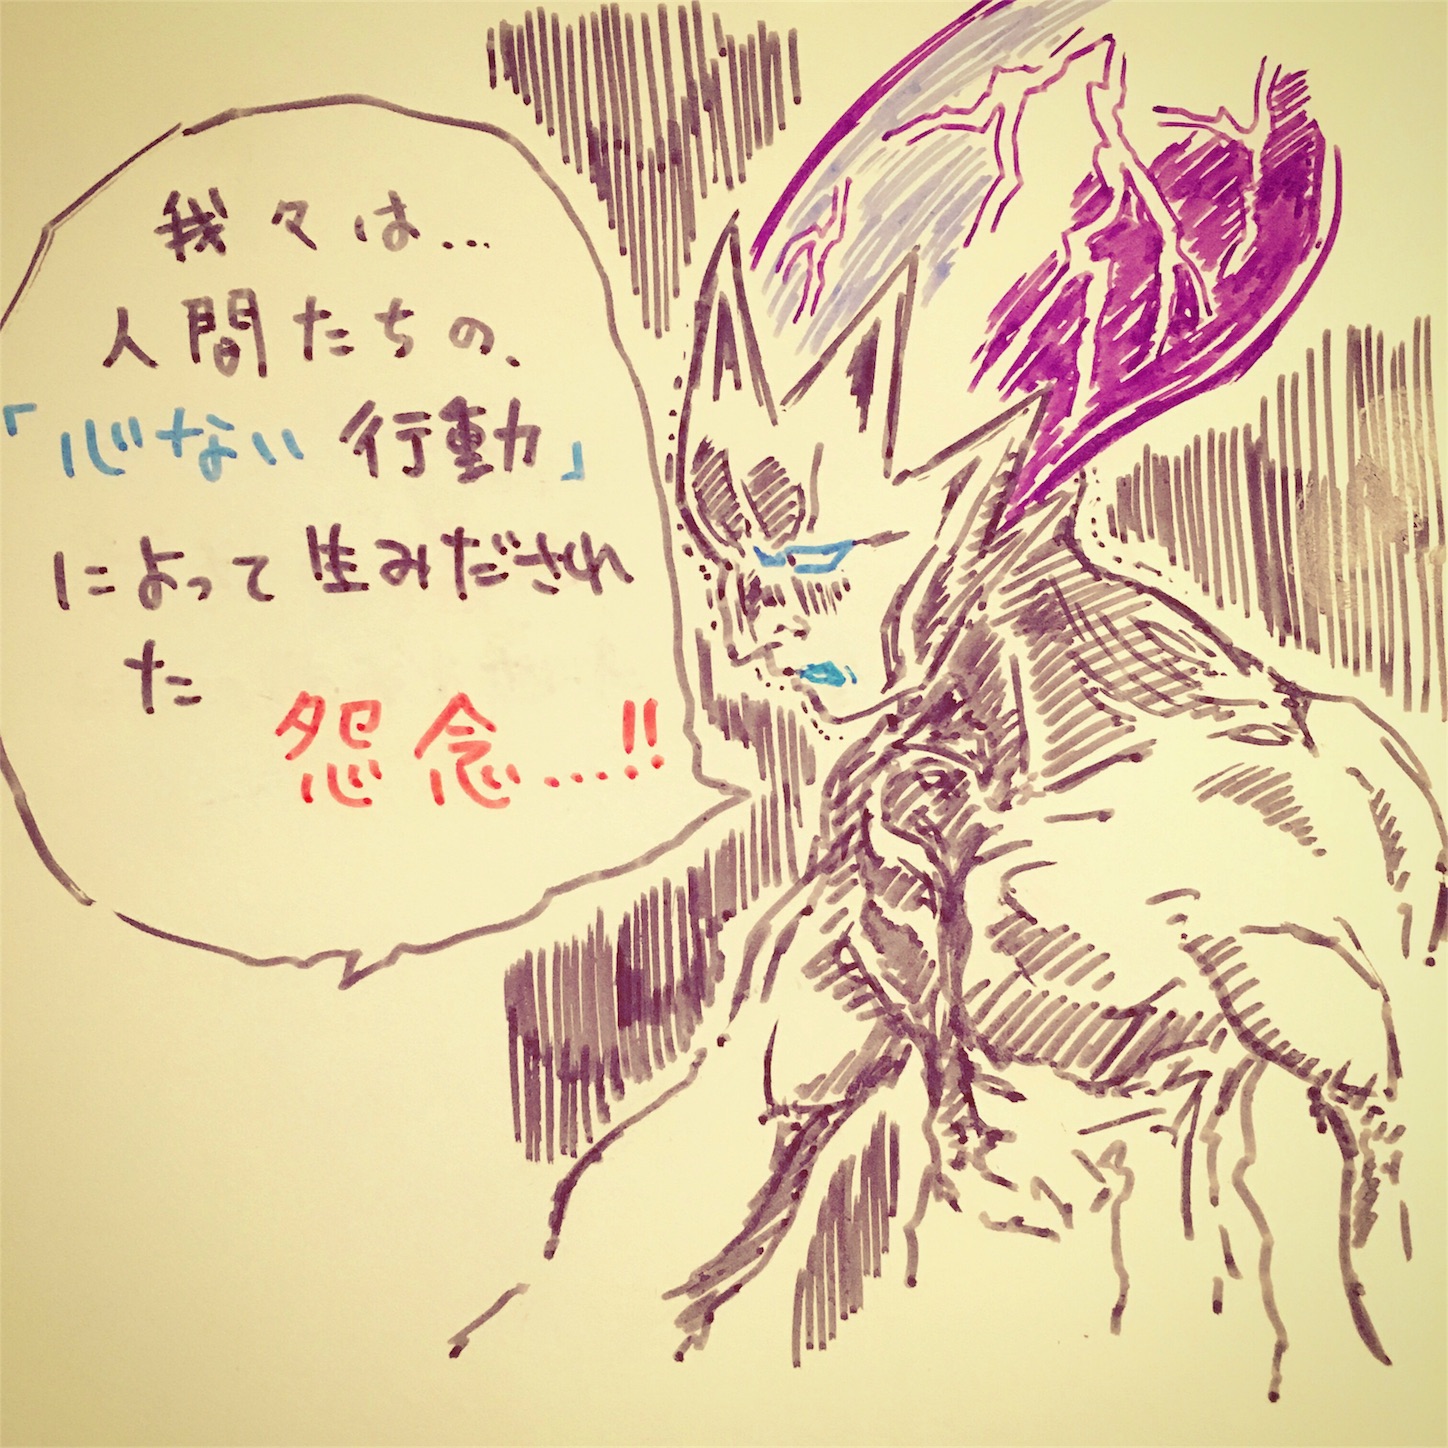 我々は...
人間たちの、
「心ない行動」
によって生みだされ
た
怨念...!!